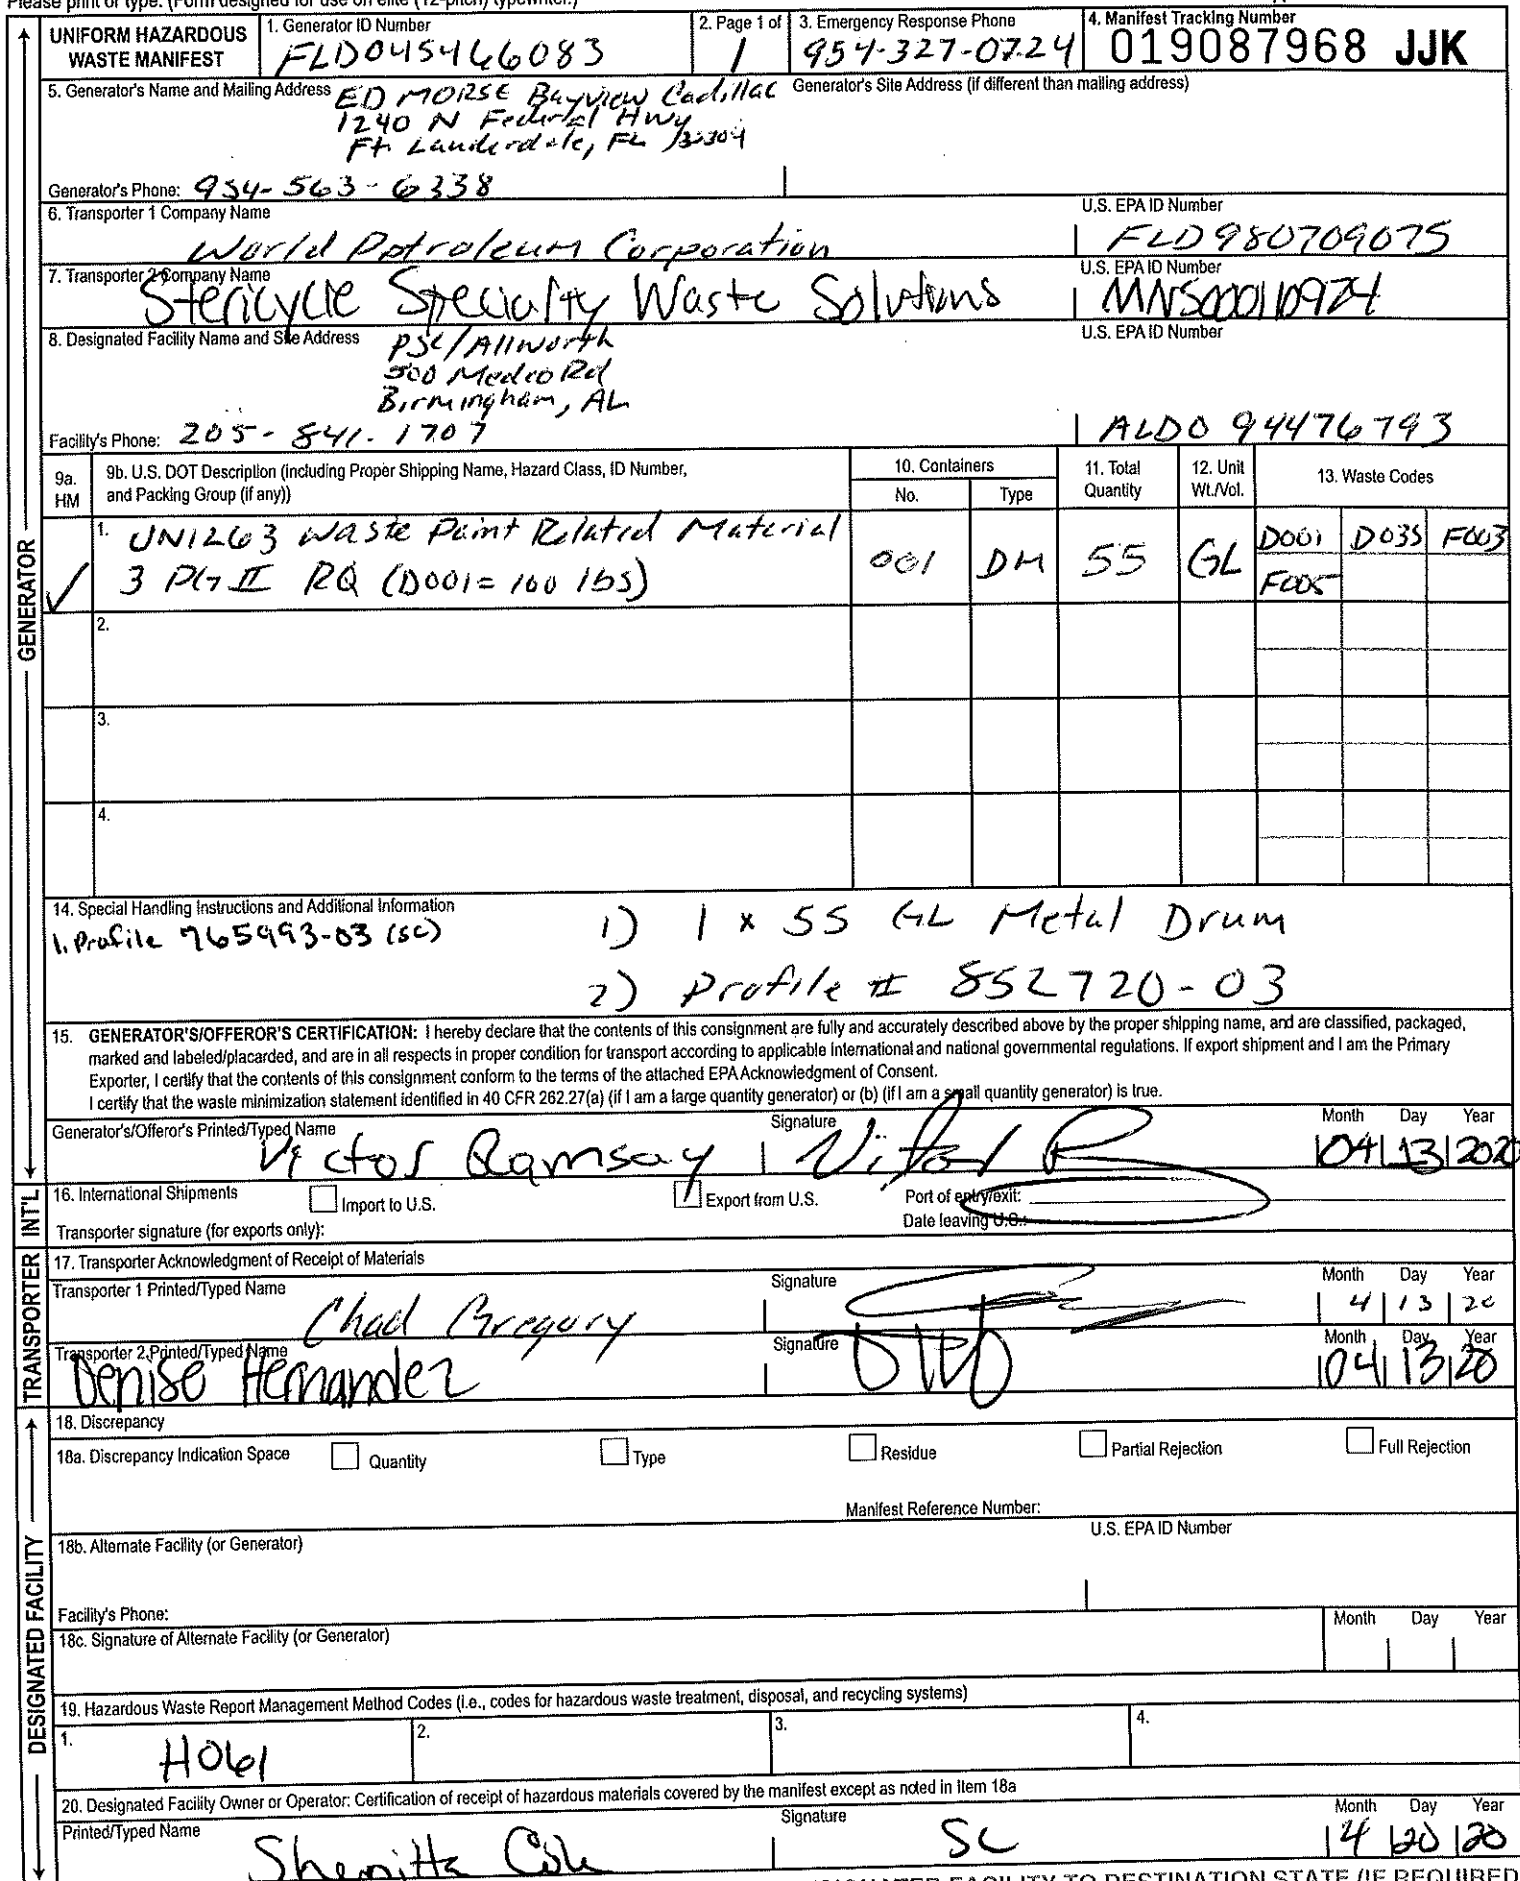 Please print or type. (Form designed for use on elite (12-pitch) typewriter.)
UNIFORM HAZARDOUS WASTE MANIFEST
1. Generator ID Number
FLD045466083
2. Page 1 of
1
3. Emergency Response Phone
954-327-0724
4. Manifest Tracking Number
019087968 JJK
5. Generator's Name and Mailing Address
ED MORSE Bayview Cadillac
1240 N Federal Hwy
Ft. Lauderdale, FL 33304
Generator's Site Address (if different than mailing address)
Generator's Phone: 954-563-6338
6. Transporter 1 Company Name
World Petroleum Corporation
U.S. EPA ID Number
FLD980709075
7. Transporter 2 Company Name
Stericycle Specialty Waste Solutions
U.S. EPA ID Number
MNS000110924
8. Designated Facility Name and Site Address
PSC/Allworth
500 Medco Rd
Birmingham, AL
U.S. EPA ID Number
ALD0 94476793
Facility's Phone: 205-841-1707
9a. HM
9b. U.S. DOT Description (including Proper Shipping Name, Hazard Class, ID Number, and Packing Group (if any))
10. Containers
No.
Type
11. Total Quantity
12. Unit Wt./Vol.
13. Waste Codes
1. UN1263 Waste Paint Related Material
3 PG II RQ (D001= 100 lbs)
001
DM
55
GL
D001 D035 F003
F005
2.
3.
4.
14. Special Handling Instructions and Additional Information
1. Profile 765993-03 (SC)
1) 1 x 55 GL Metal Drum
2) Profile # 852720-03
15. GENERATOR'S/OFFEROR'S CERTIFICATION: I hereby declare that the contents of this consignment are fully and accurately described above by the proper shipping name, and are classified, packaged,
marked and labeled/placarded, and are in all respects in proper condition for transport according to applicable international and national governmental regulations. If export shipment and I am the Primary
Exporter, I certify that the contents of this consignment conform to the terms of the attached EPA Acknowledgment of Consent.
I certify that the waste minimization statement identified in 40 CFR 262.27(a) (if I am a large quantity generator) or (b) (if I am a small quantity generator) is true.
Generator's/Offeror's Printed/Typed Name
Victor Ramsay
Signature
Month Day Year
04 13 2020
16. International Shipments
Import to U.S.
Export from U.S.
Port of entry/exit:
Date leaving U.S.:
Transporter signature (for exports only):
17. Transporter Acknowledgment of Receipt of Materials
Transporter 1 Printed/Typed Name
Chad Gregory
Signature
Month Day Year
4 13 20
Transporter 2 Printed/Typed Name
Denise Hernandez
Signature
Month Day Year
04 13 20
18. Discrepancy
18a. Discrepancy Indication Space
Quantity
Type
Residue
Partial Rejection
Full Rejection
Manifest Reference Number:
18b. Alternate Facility (or Generator)
U.S. EPA ID Number
Facility's Phone:
18c. Signature of Alternate Facility (or Generator)
Month Day Year
19. Hazardous Waste Report Management Method Codes (i.e., codes for hazardous waste treatment, disposal, and recycling systems)
1. H061
2.
3.
4.
20. Designated Facility Owner or Operator: Certification of receipt of hazardous materials covered by the manifest except as noted in Item 18a
Printed/Typed Name
Shemitta
Signature
SC
Month Day Year
4 20 20
FACILITY TO DESTINATION STATE (IF REQUIRED
GENERATOR
INT'L
TRANSPORTER
DESIGNATED FACILITY